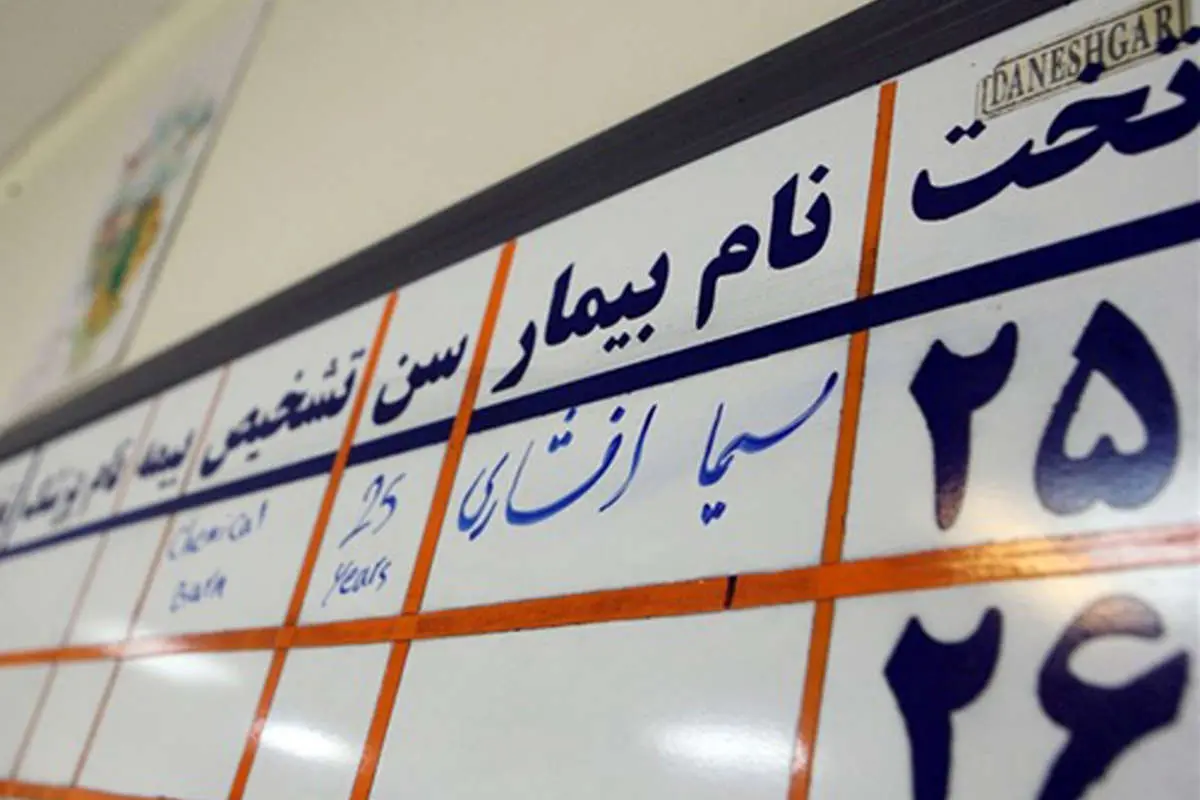 DANESHGAR
تخت نام بیمار سن تشخیص بیمه نام پزشک
۲۵ سیما افشاری 25 Chemical
Years Burn
۲۶